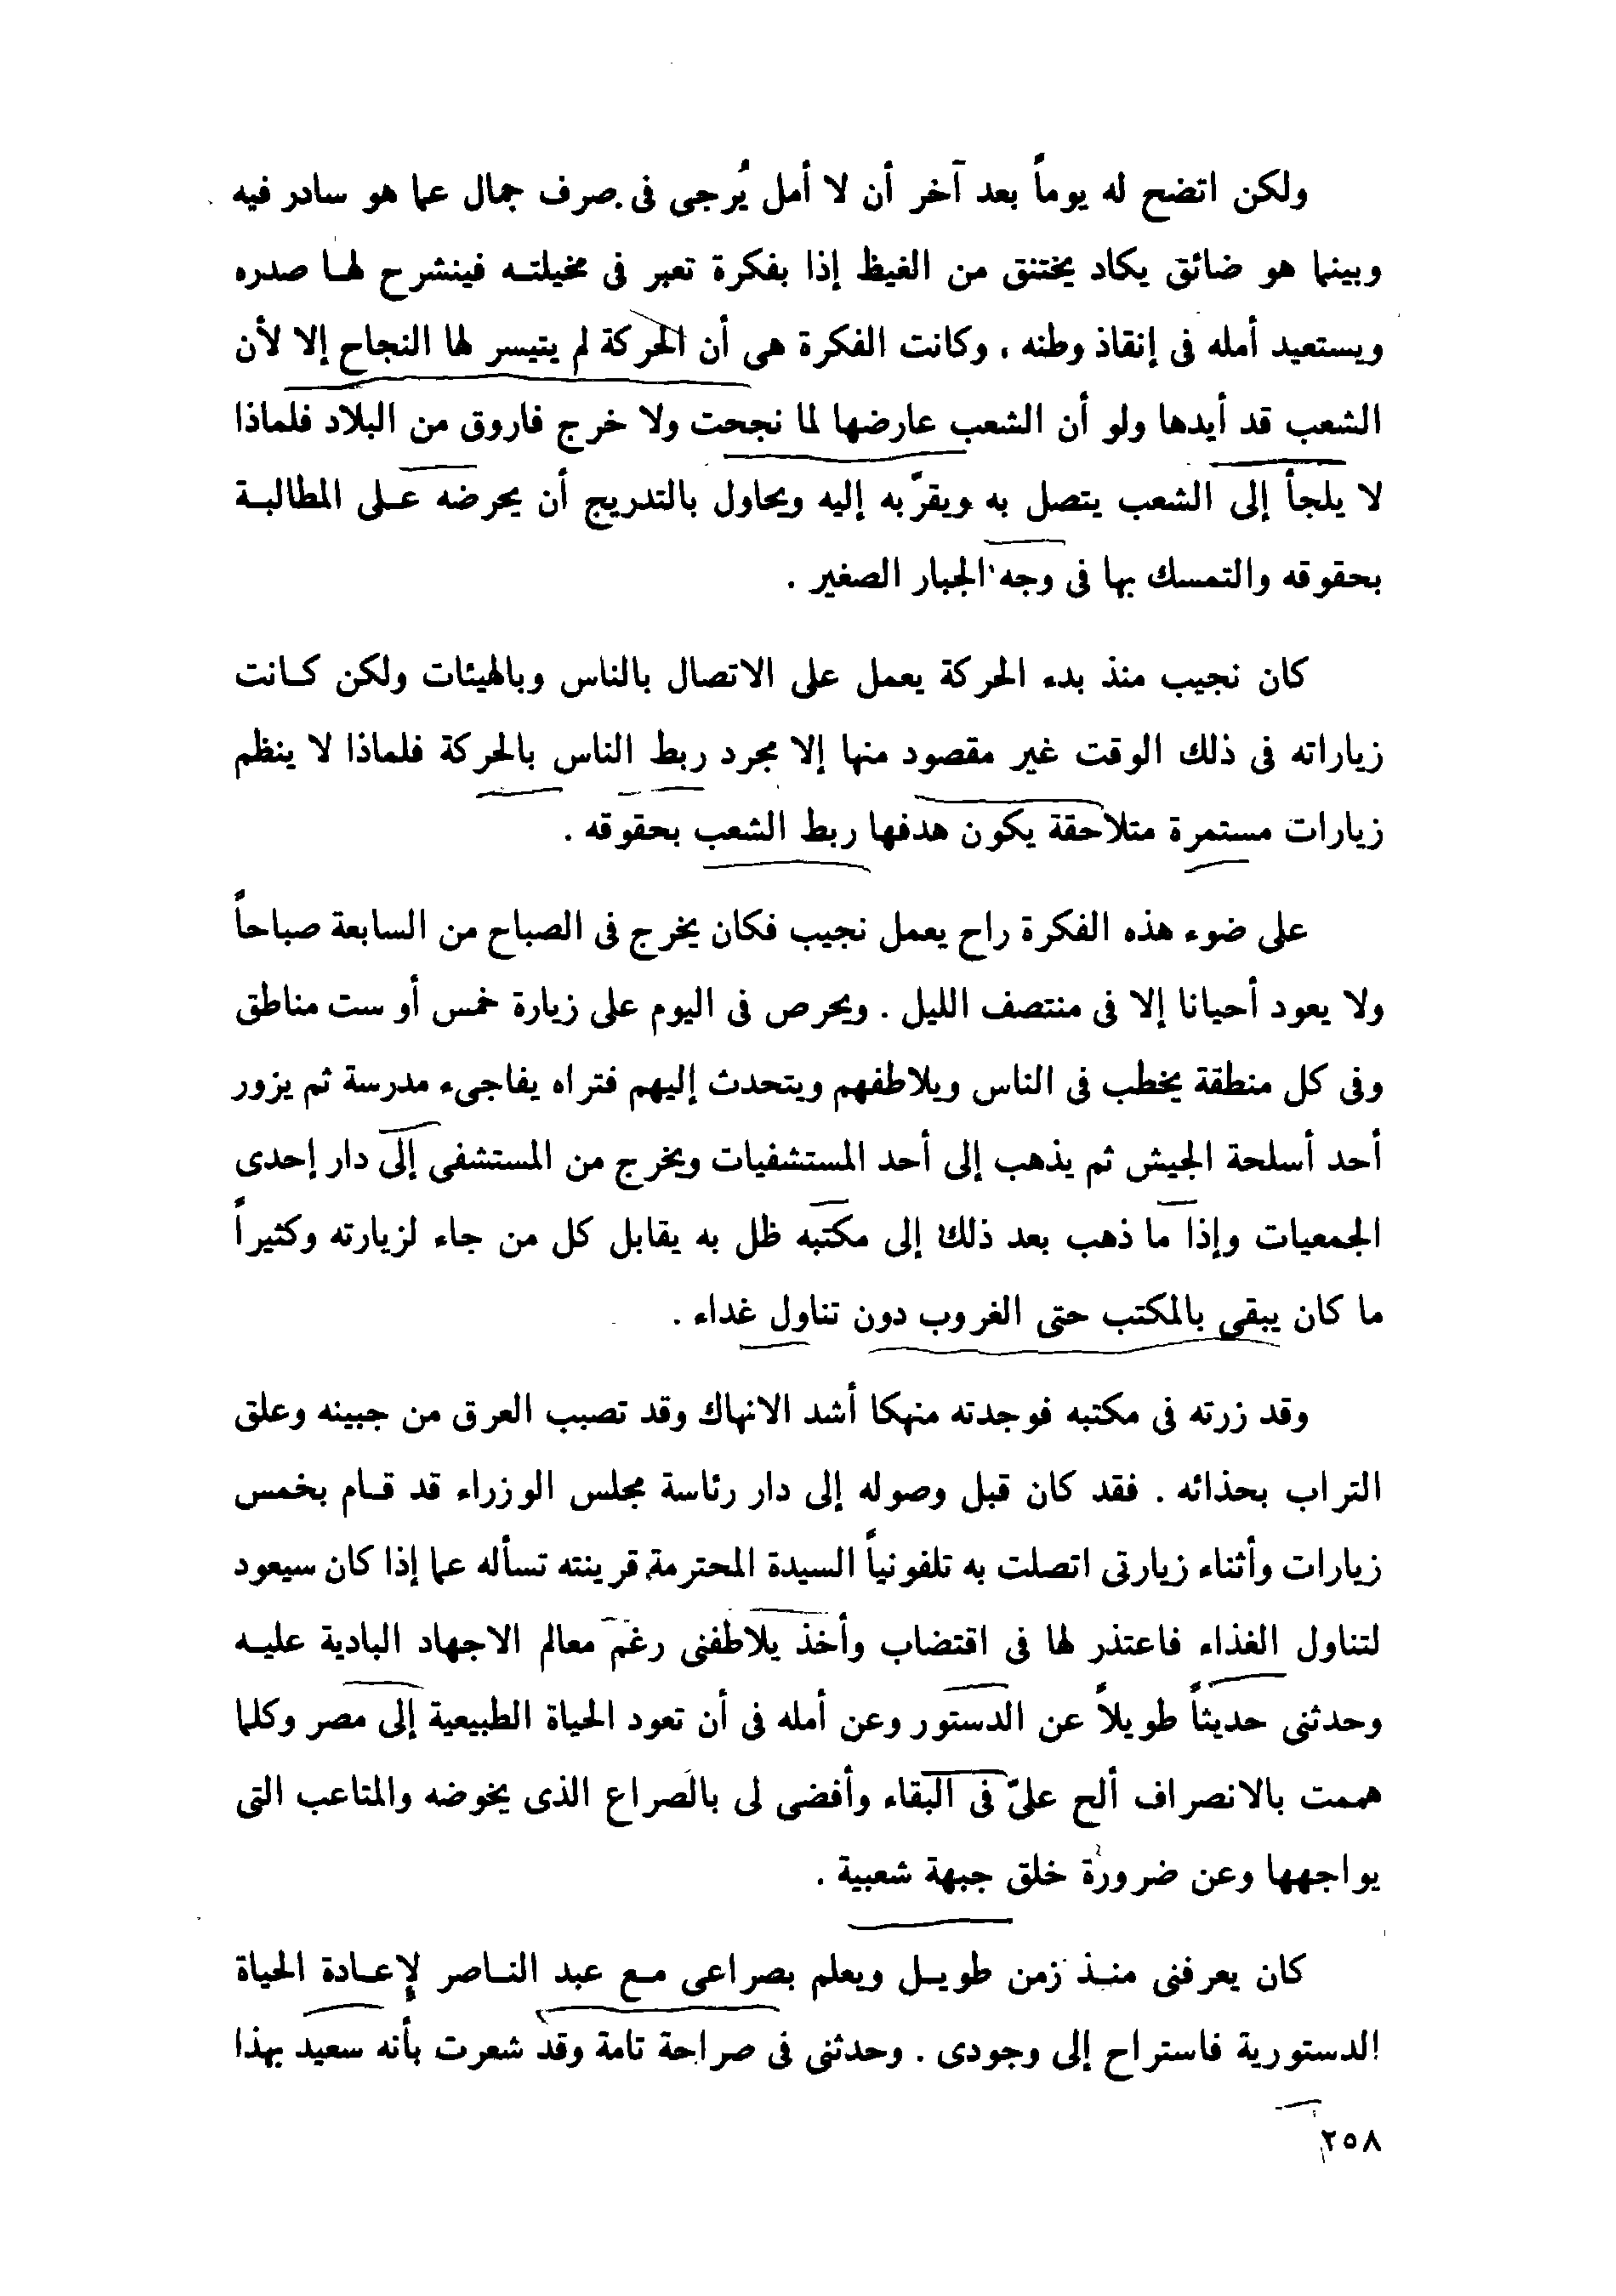 ولكن اتضح له يوماً بعد آخر أن لا أمل يُرجى فى صرف جمال عما هو سادر فيه
وبينما هو ضائق يكاد يختنق من الغيظ إذا بفكرة تعبر فى مخيلته فينشرح لها صدره
ويستعيد أمله فى إنقاذ وطنه ، وكانت الفكرة هى أن الحركة لم يتيسر لها النجاح إلا لأن
الشعب قد أيدها ولو أن الشعب عارضها لما نجحت ولا خرج فاروق من البلاد فلماذا
لا يلجأ إلى الشعب يتصل به ويقرّبه إليه ويحاول بالتدريج أن يحرضه على المطالبة
بحقوقه والتمسك بها فى وجه الجبار الصغير .
كان نجيب منذ بدء الحركة يعمل على الاتصال بالناس وبالهيئات ولكن كانت
زياراته فى ذلك الوقت غير مقصود منها إلا مجرد ربط الناس بالحركة فلماذا لا ينظم
زيارات مستمرة متلاحقة يكون هدفها ربط الشعب بحقوقه .
على ضوء هذه الفكرة راح يعمل نجيب فكان يخرج فى الصباح من السابعة صباحاً
ولا يعود أحيانا إلا فى منتصف الليل . ويحرص فى اليوم على زيارة خمس أو ست مناطق
وفى كل منطقة يخطب فى الناس ويلاطفهم ويتحدث إليهم فتراه يفاجىء مدرسة ثم يزور
أحد أسلحة الجيش ثم يذهب إلى أحد المستشفيات ويخرج من المستشفى إلى دار إحدى
الجمعيات وإذا ما ذهب بعد ذلك إلى مكتبه ظل به يقابل كل من جاء لزيارته وكثيراً
ما كان يبقى بالمكتب حتى الغروب دون تناول غداء .
وقد زرته فى مكتبه فوجدته منهكا أشد الانهاك وقد تصبب العرق من جبينه وعلق
التراب بحذائه . فقد كان قبل وصوله إلى دار رئاسة مجلس الوزراء قد قام بخمس
زيارات وأثناء زيارتى اتصلت به تلفونياً السيدة المحترمة قرينته تسأله عما إذا كان سيعود
لتناول الغذاء فاعتذر لها فى اقتضاب وأخذ يلاطفنى رغم معالم الاجهاد البادية عليه
وحدثنى حديثاً طويلاً عن الدستور وعن أمله فى أن تعود الحياة الطبيعية إلى مصر وكلما
هممت بالانصراف ألح علىّ فى البقاء وأفضى لى بالصراع الذى يخوضه والمتاعب التى
يواجهها وعن ضرورة خلق جبهة شعبية .
كان يعرفنى منذ زمن طويل ويعلم بصراعى مع عبد الناصر لإعادة الحياة
الدستورية فاستراح إلى وجودى . وحدثنى فى صراحة تامة وقد شعرت بأنه سعيد بهذا
٢٥٨